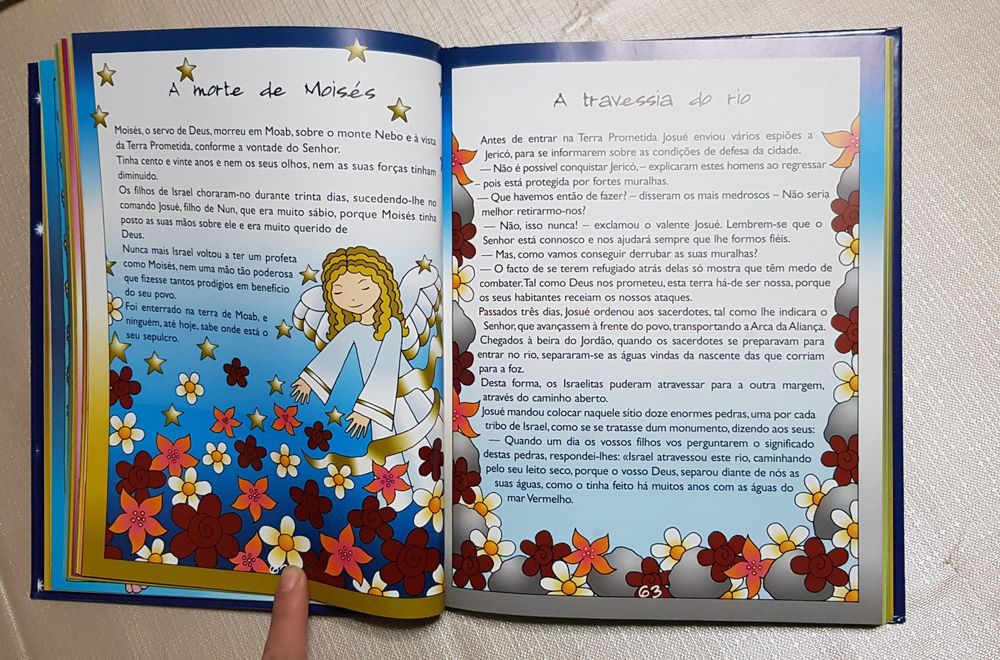 A morte de Moisés
Moisés, o servo de Deus, morreu em Moab, sobre o monte Nebo e à vista
da Terra Prometida, conforme a vontade do Senhor.
Tinha cento e vinte anos e nem os seus olhos, nem as suas forças tinham
diminuido.
Os filhos de Israel choraram-no durante trinta dias, sucedendo-lhe no
comando Josué, filho de Nun, que era muito sábio, porque Moisés tinha
posto as suas mãos sobre ele e era muito querido de
Deus.
Nunca mais Israel voltou a ter um profeta
como Moisés, nem uma mão tão poderosa
que fizesse tantos prodigios em beneficio
do seu povo.
Foi enterrado na terra de Moab, e
ninguém, até hoje, sabe onde está o
seu sepulcro.
A travessia do rio
Antes de entrar na Terra Prometida Josué enviou vários espiões a
Jericó, para se informarem sobre as condições de defesa da cidade.
— Não é possível conquistar Jericó, – explicaram estes homens ao regressar
– pois está protegida por fortes muralhas.
— Que havemos então de fazer? – disseram os mais medrosos – Não seria
melhor retirarmo-nos?
— Não, isso nunca! – exclamou o valente Josué. Lembrem-se que o
Senhor está connosco e nos ajudará sempre que lhe formos fiéis.
— Mas, como vamos conseguir derrubar as suas muralhas?
— O facto de se terem refugiado atrás delas só mostra que têm medo de
combater. Tal como Deus nos prometeu, esta terra há-de ser nossa, porque
os seus habitantes receiam os nossos ataques.
Passados três dias, Josué ordenou aos sacerdotes, tal como lhe indicara o
Senhor, que avançassem à frente do povo, transportando a Arca da Aliança.
Chegados à beira do Jordão, quando os sacerdotes se preparavam para
entrar no rio, separaram-se as águas vindas da nascente das que corriam
para a foz.
Desta forma, os Israelitas puderam atravessar para a outra margem,
através do caminho aberto.
Josué mandou colocar naquele sítio doze enormes pedras, uma por cada
tribo de Israel, como se se tratasse dum monumento, dizendo aos seus:
— Quando um dia os vossos filhos vos perguntarem o significado
destas pedras, respondei-lhes: «Israel atravessou este rio, caminhando
pelo seu leito seco, porque o vosso Deus, separou diante de nós as
suas águas, como o tinha feito há muitos anos com as águas do
mar Vermelho.
63